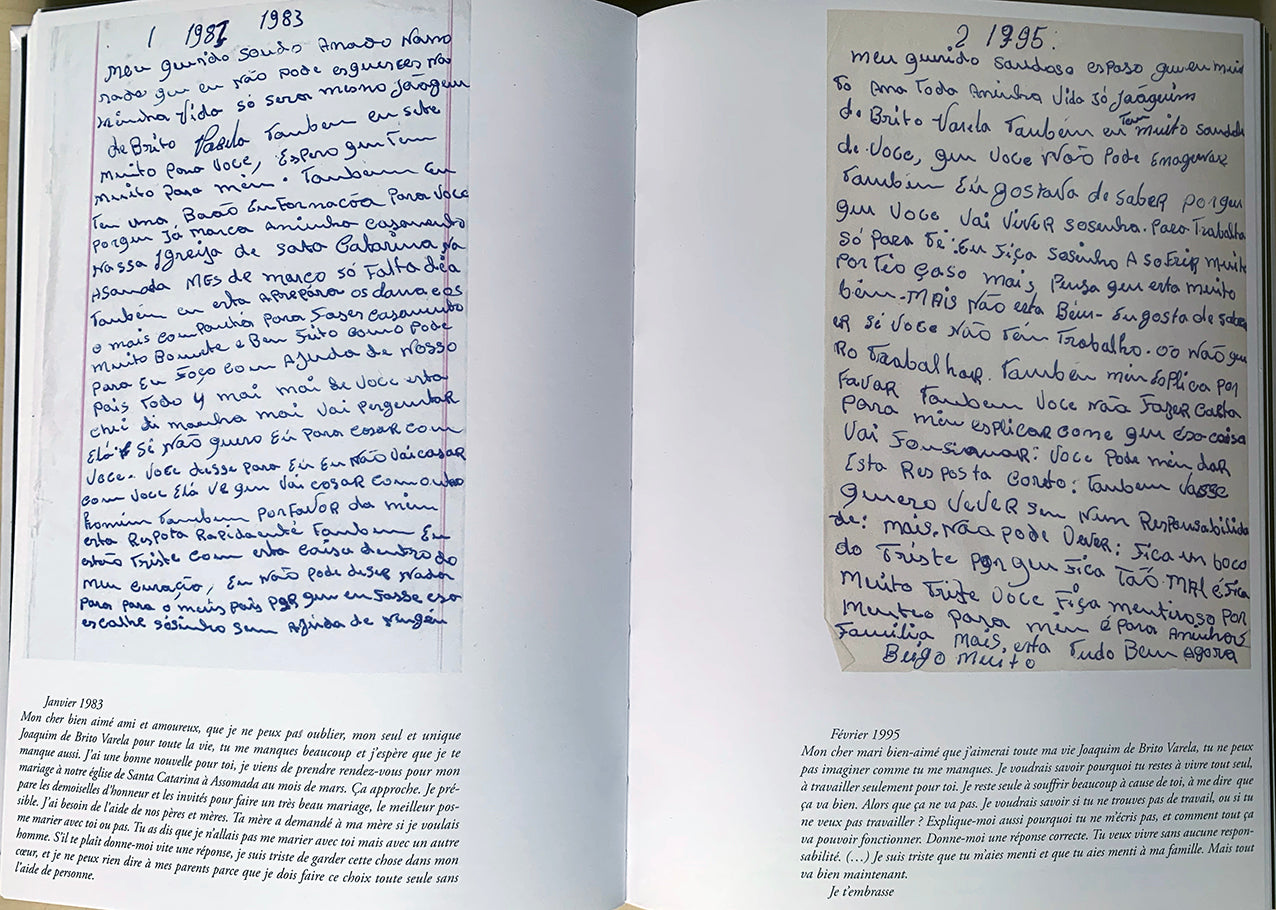 1 1983 1983
meu querido Saudo Amado Namo
rado que eu Não pode esquesses Na
Minha Vida só sera mesmo Joãgem
de Brito Varela Tambem eu sote
Muito Para Voce, Espero que Tem
Muito Para mim. Também Eu
Tem uma Enformacõa Para Voce
Porque Já marca Aminha casamento
Nassa Igreija de Sata Catarina na
Asamada MES de março só Falta
Também eu esta os
o mais Para Fases casamento
Muito Bonnete e Ben Feito como pode
Para Eu Foço com Ajuda de Nosso
Pais Todo y mai mai de Voce esta
minha mai Vai Perguntar
Elá Sé Não quero Eu Para casar com
Voce. Voce desse Para Eu Eu Não Vai casar
com Voce Elá Ve que Vai casar com outro
homim Tambem Por Favor da mim
esta Respota Rapidaenté Tambem Eu
estão Triste com esta caisa dentro do
Meu curação, Eu Não Pode deser Nada
Para Para o meis pais Por que eu Fasse esa
escalhe sósinho sem Ajuda de Ningén
Janvier 1983
Mon cher bien aimé ami et amoureux, que je ne peux pas oublier, mon seul et unique
Joaquim de Brito Varela pour toute la vie, tu me manques beaucoup et j'espère que je te
manque aussi. J'ai une bonne nouvelle pour toi, je viens de prendre rendez-vous pour mon
mariage à notre église de Santa Catarina à Assomada au mois de mars. Ça approche. Je pré-
pare les demoiselles d'honneur et les invités pour faire un très beau mariage, le meilleur pos-
sible. J'ai besoin de l'aide de nos pères et mères. Ta mère a demandé à ma mère si je voulais
me marier avec toi ou pas. Tu as dis que je n'allais pas me marier avec toi mais avec un autre
homme. S'il te plaît donne-moi vite une réponse, je suis triste de garder cette chose dans mon
cœur, et je ne peux rien dire à mes parents parce que je dois faire ce choix toute seule sans
l'aide de personne.
2 1995.
meu querido saudoso esposo que eu mui
To Ama Toda Aminha Vida só Joáquim
de Brito Varela Também eu Tem muito saudade
de Voce, que Voce Não Pode Emagenar
Também Eu gostava de saber Porque
que Voce Vai Viver sosenha. Para Trabalha
só Para Té: Eu Fiça sosinho A sofrir muito
Por Téo çaso mais, Pensa que esta muito
bém. MAIS Não esta Bém. Eu gosta de sabe
er sé Voce Não Tém Trabalho. oo Não que
Ro Trabalhar. Também mim Esplica Por
Favar Tambem Voce Não Fazer Carta
Para meu esplicar come que esa caisa
Vai Fonsionar: Voce Pode mim dar
Esta Resposta Corsto: Tambem Vosse
Quero Vever sem Num Responsabilida
de: mais. Não Pode Vever: Fica un boco
do Triste Porque Fica Tão MAl é Fica
Muito Triste Voce Fiça mentiroso Por
Munteo Para mim é Para Aminhas
Familia Mais, esta Tudo Bem Agora
Beigo Muito
Février 1995
Mon cher mari bien-aimé que j'aimerai toute ma vie Joaquim de Brito Varela, tu ne peux
pas imaginer comme tu me manques. Je voudrais savoir pourquoi tu restes à vivre tout seul,
à travailler seulement pour toi. Je reste seule à souffrir beaucoup à cause de toi, à me dire que
ça va bien. Alors que ça ne va pas. Je voudrais savoir si tu ne trouves pas de travail, ou si tu
ne veux pas travailler ? Explique-moi aussi pourquoi tu ne m'écris pas, et comment tout ça
va pouvoir fonctionner. Donne-moi une réponse correcte. Tu veux vivre sans aucune respon-
sabilité. (…) Je suis triste que tu m'aies menti et que tu aies menti à ma famille. Mais tout
va bien maintenant.
Je t'embrasse